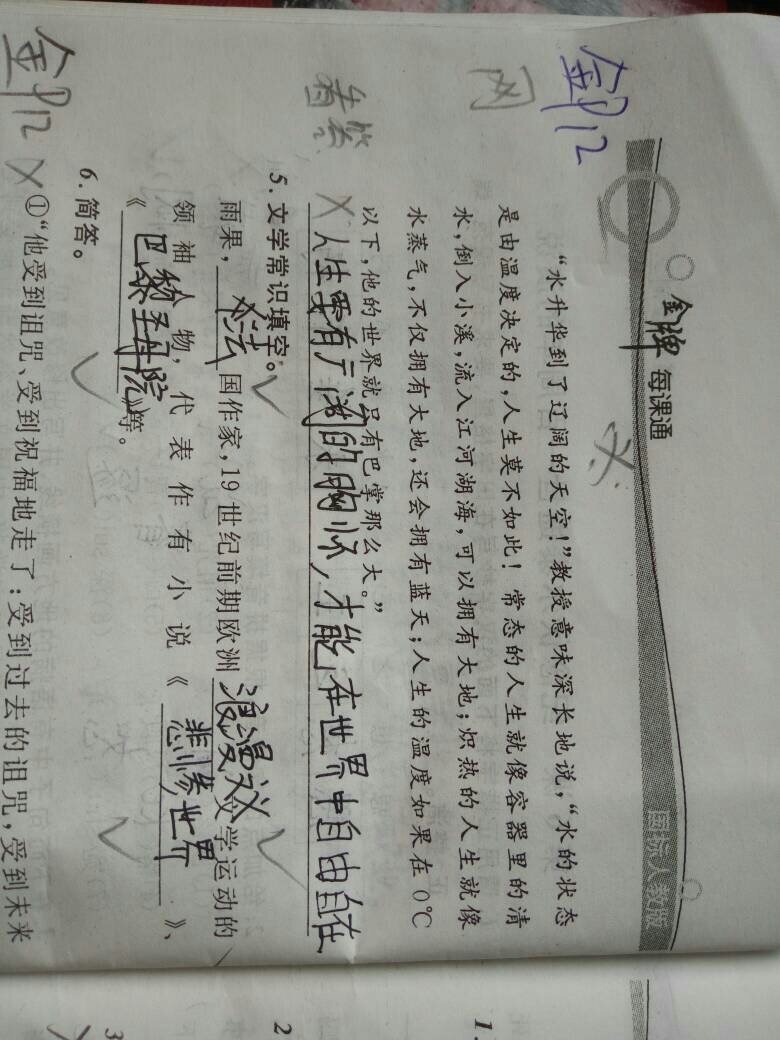 金牌每课通
国标人教版
“水升华到了辽阔的天空!”教授意味深长地说,“水的状态
是由温度决定的,人生莫不如此! 常态的人生就像容器里的清
水,倒入小溪,流入江河湖海,可以拥有大地;炽热的人生就像
水蒸气,不仅拥有大地,还会拥有蓝天;人生的温度如果在 0℃
以下,他的世界就只有巴掌那么大。”
人生要有广阔的胸怀,才能在世界中自由自在
5. 文学常识填空。
雨果,法国作家,19 世纪前期欧洲浪漫主义文学运动的
领袖人物,代表作有小说《悲惨世界》、
《巴黎圣母院》等。
6. 简答。
①“他受到诅咒、受到祝福地走了:受到过去的诅咒,受到未来
P12
网
P12
1.
2
3